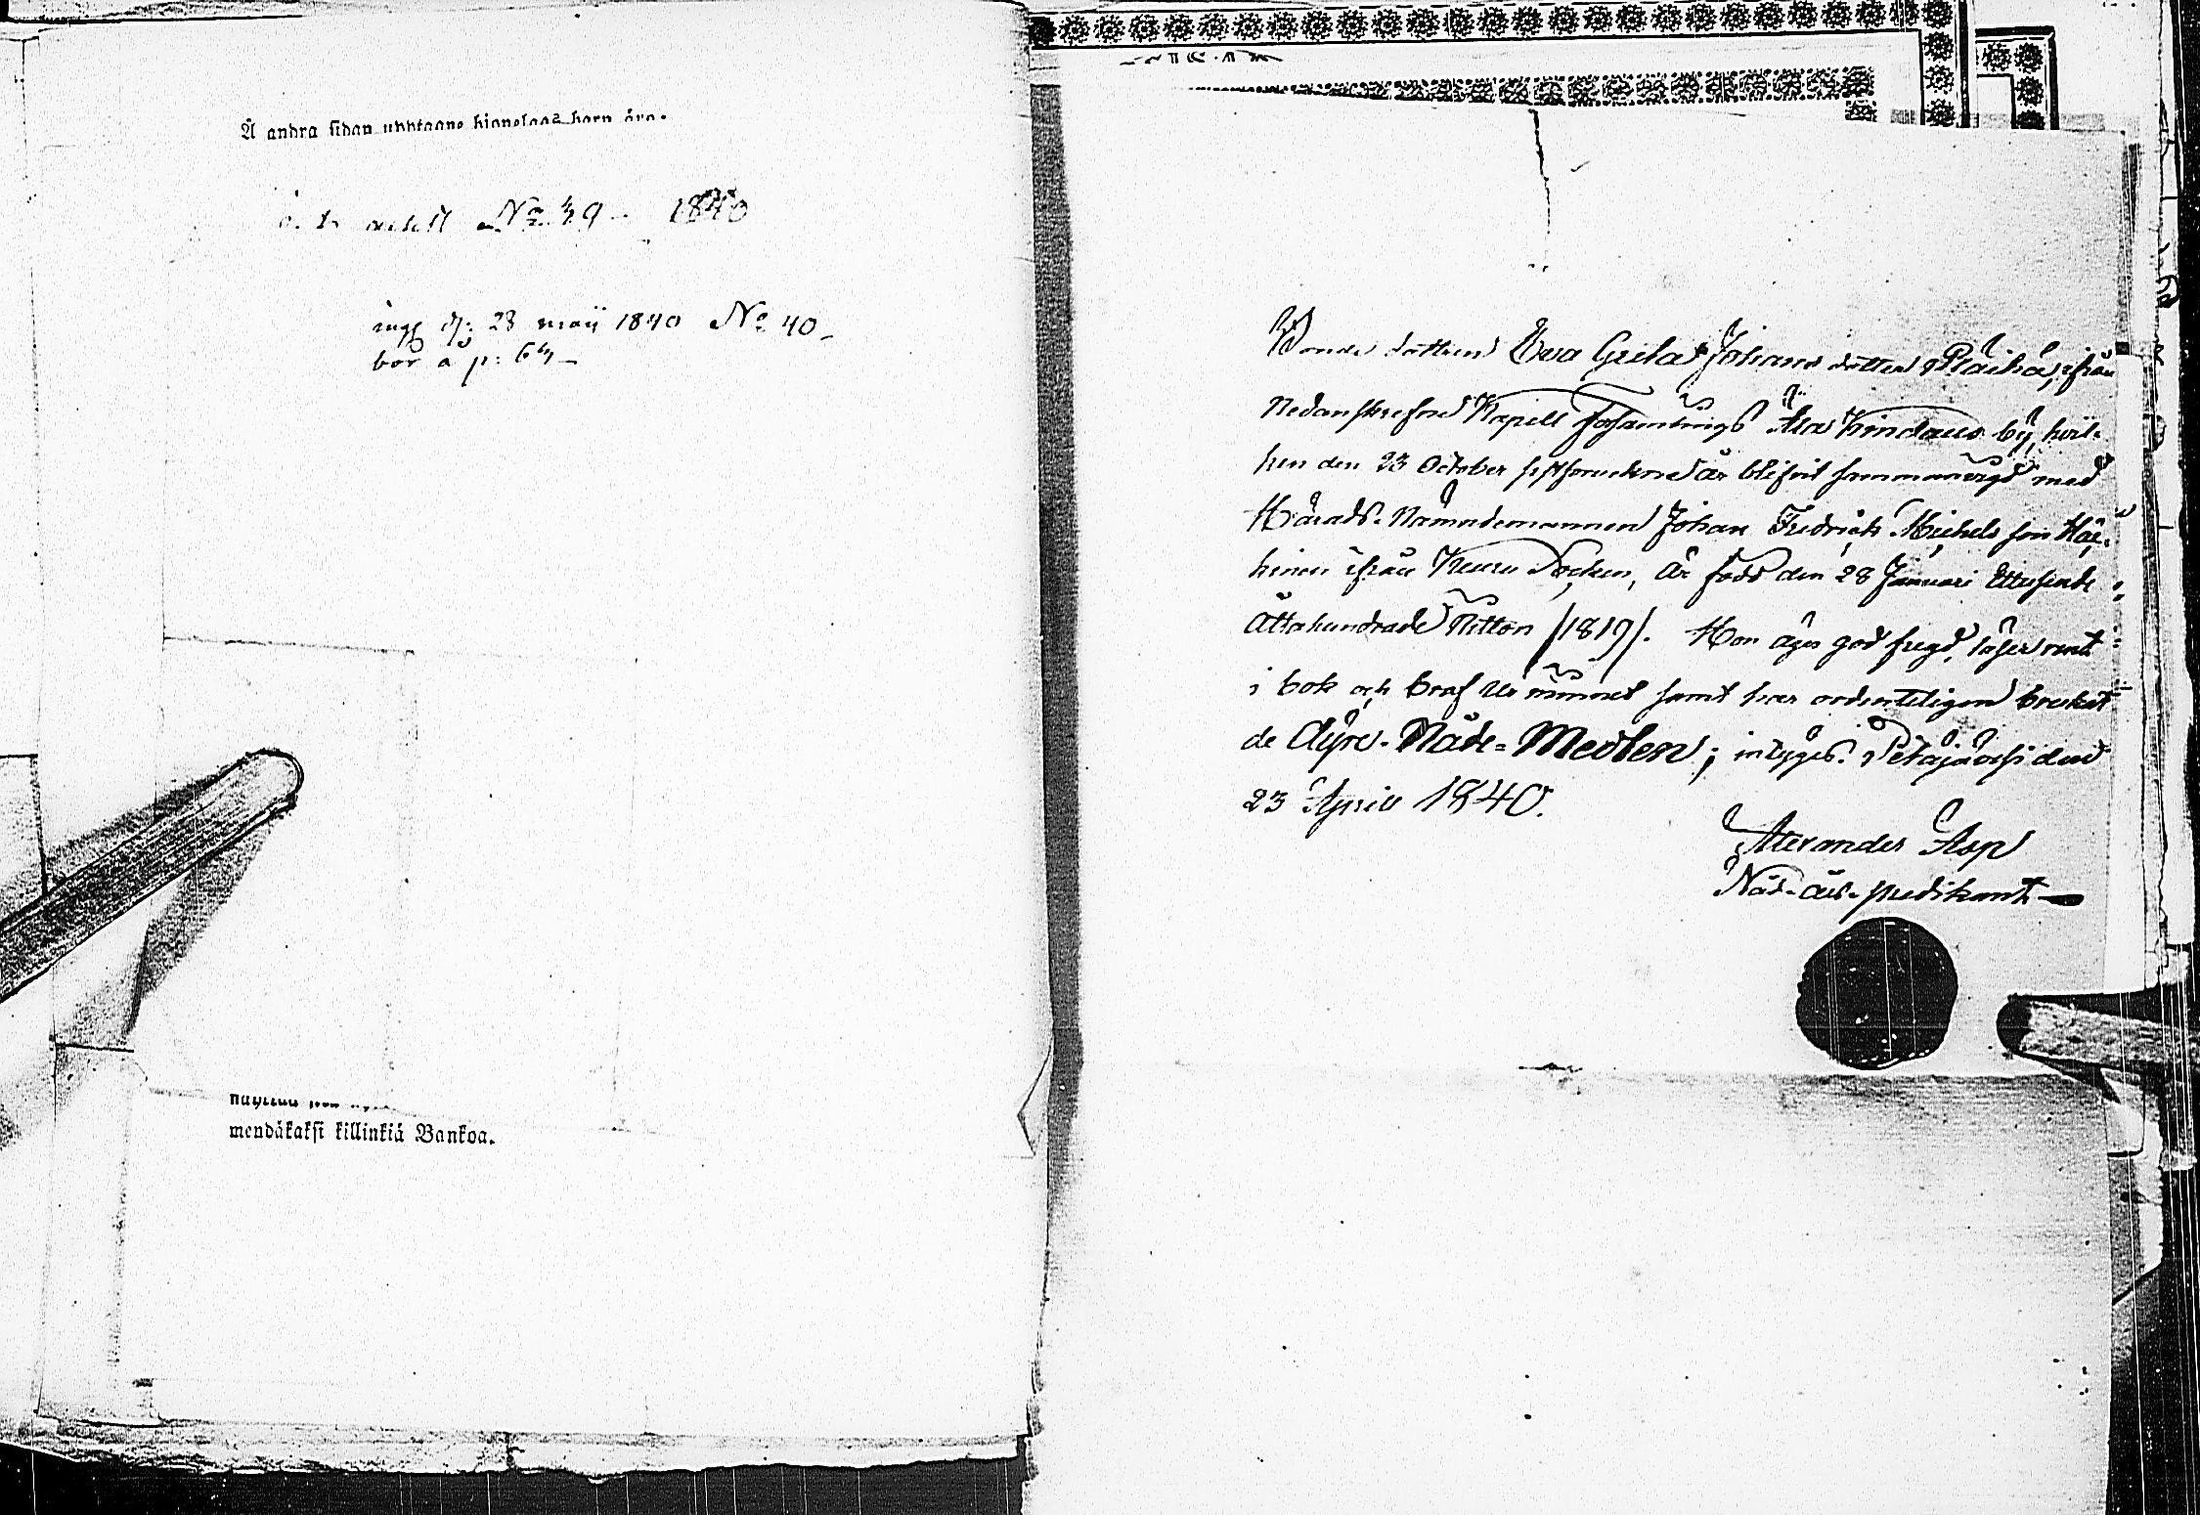 Å andra sidan
attest No 39 1840
ing d: 23 maij 1840 No 40
bör å p: 64
mendäkaksi killinkiä Bankoa.
Bonde dottren Eva Greta Johans dotter Pläihä, ifrån
Nedanskrefne Kapell församlings Ala Kindaus by, hvil-
ken den 23 October sistförvekne är blifvit sammanvigd med
Härads-Nämndemannen Johan Fredrich Michels son Häi-
hinen ifrån Keuru Socken, är född den 28 Januari Ettusende
Ottahundrade Nitton /1819/. Hon äger god fregd, läser rent
i bok och braf ur minnet samt har ordenteligen brukat
de Dyre-Nåde-Medlen; intygas. Petäjävesi den
23 April 1840.
Alexander Asp
predikant